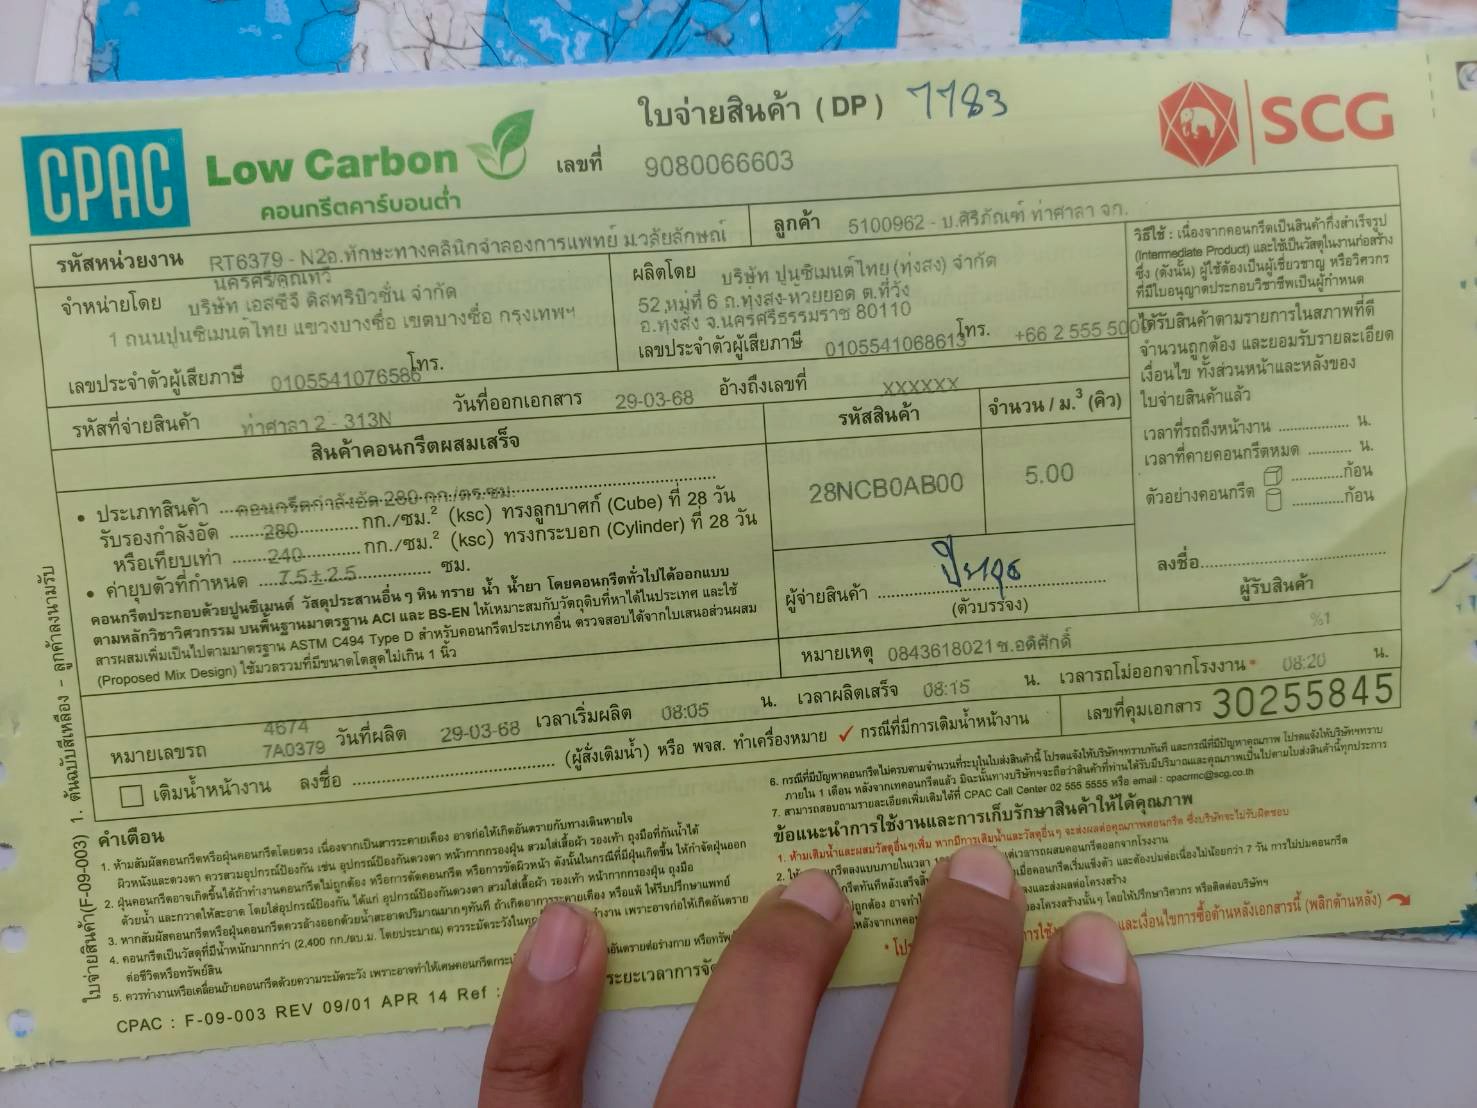 ใบจ่ายสินค้า ( DP ) 7783
CPAC Low Carbon
คอนกรีตคาร์บอนต่ำ
เลขที่ 9080066603
SCG
รหัสหน่วยงาน RT6379 - N2อ.ทักษะทางคลินิกจำลองการแพทย์ ม.วลัยลักษณ์
นครศรีคุณทวี
ลูกค้า 5100962 - บ.ศิริภัณฑ์ ท่าศาลา จก.
จำหน่ายโดย บริษัท เอสซีจี ดิสทริบิวชั่น จำกัด
1 ถนนปูนซิเมนต์ไทย แขวงบางซื่อ เขตบางซื่อ กรุงเทพฯ
โทร.
เลขประจำตัวผู้เสียภาษี 0105541076586
ผลิตโดย บริษัท ปูนซิเมนต์ไทย (ทุ่งสง) จำกัด
52 หมู่ที่ 6 ถ.ทุ่งสง-ห้วยยอด ต.ที่วัง
อ.ทุ่งสง จ.นครศรีธรรมราช 80110
เลขประจำตัวผู้เสียภาษี 0105541068613 โทร. +66 2 555 5000
วิธีใช้ : เนื่องจากคอนกรีตเป็นสินค้ากึ่งสำเร็จรูป
(Intermediate Product) และใช้เป็นวัสดุในงานก่อสร้าง
ซึ่ง (ดังนั้น) ผู้ใช้ต้องเป็นผู้เชี่ยวชาญ หรือวิศวกร
ที่มีใบอนุญาตประกอบวิชาชีพเป็นผู้กำหนด
ได้รับสินค้าตามรายการในสภาพที่ดี
จำนวนถูกต้อง และยอมรับรายละเอียด
เงื่อนไข ทั้งส่วนหน้าและหลังของ
ใบจ่ายสินค้าแล้ว
เวลาที่รถถึงหน้างาน .................. น.
เวลาที่คายคอนกรีตหมด ........... น.
ตัวอย่างคอนกรีต ............ก้อน
............ก้อน
ลงชื่อ..............................
ผู้รับสินค้า
รหัสที่จ่ายสินค้า ท่าศาลา 2 - 313N
วันที่ออกเอกสาร 29-03-68 อ้างถึงเลขที่ XXXXXX
สินค้าคอนกรีตผสมเสร็จ
รหัสสินค้า
จำนวน / ม.³ (คิว)
28NCB0AB00
5.00
• ประเภทสินค้า คอนกรีตกำลังอัด 280 กก./ตร.ซม.
รับรองกำลังอัด 280 กก./ซม.² (ksc) ทรงลูกบาศก์ (Cube) ที่ 28 วัน
หรือเทียบเท่า 240 กก./ซม.² (ksc) ทรงกระบอก (Cylinder) ที่ 28 วัน
• ค่ายุบตัวที่กำหนด 7.5±2.5 ซม.
คอนกรีตประกอบด้วยปูนซีเมนต์ วัสดุประสานอื่น ๆ หิน ทราย น้ำ น้ำยา โดยคอนกรีตทั่วไปได้ออกแบบ
ตามหลักวิชาวิศวกรรม บนพื้นฐานมาตรฐาน ACI และ BS-EN ให้เหมาะสมกับวัตถุดิบที่หาได้ในประเทศ และใช้
สารผสมเพิ่มเป็นไปตามมาตรฐาน ASTM C494 Type D สำหรับคอนกรีตประเภทอื่น ตรวจสอบได้จากใบเสนอส่วนผสม
(Proposed Mix Design) ใช้มวลรวมที่มีขนาดโตสุดไม่เกิน 1 นิ้ว
ผู้จ่ายสินค้า
(ตัวบรรจง)
หมายเหตุ 0843618021ช.อดิศักดิ์
%1
หมายเลขรถ 4674
7A0379
วันที่ผลิต 29-03-68 เวลาเริ่มผลิต 08:05 น. เวลาผลิตเสร็จ 08:15 น. เวลารถโม่ออกจากโรงงาน* 08:20 น.
เติมน้ำหน้างาน ลงชื่อ .................................... (ผู้สั่งเติมน้ำ) หรือ พจส. ทำเครื่องหมาย ✓ กรณีที่มีการเติมน้ำหน้างาน
เลขที่คุมเอกสาร 30255845
คำเตือน
1. ห้ามสัมผัสคอนกรีตหรือฝุ่นคอนกรีตโดยตรง เนื่องจากเป็นสารระคายเคือง อาจก่อให้เกิดอันตรายกับทางเดินหายใจ
ผิวหนังและดวงตา ควรสวมอุปกรณ์ป้องกัน เช่น อุปกรณ์ป้องกันดวงตา หน้ากากกรองฝุ่น สวมใส่เสื้อผ้า รองเท้า ถุงมือที่กันน้ำได้
2. ฝุ่นคอนกรีตอาจเกิดขึ้นได้ถ้าทำงานคอนกรีตไม่ถูกต้อง หรือการตัดคอนกรีต หรือการขัดผิวหน้า ดังนั้นในกรณีที่มีฝุ่นเกิดขึ้น ให้กำจัดฝุ่นออก
ด้วยน้ำ และกวาดให้สะอาด โดยใส่อุปกรณ์ป้องกัน ได้แก่ อุปกรณ์ป้องกันดวงตา หน้ากากกรองฝุ่น สวมใส่เสื้อผ้า รองเท้า ถุงมือ
3. หากสัมผัสคอนกรีตหรือฝุ่นคอนกรีตควรล้างออกด้วยน้ำสะอาดปริมาณมากๆทันที ถ้าเกิดอาการระคายเคือง หรือแพ้ ให้รีบปรึกษาแพทย์
4. คอนกรีตเป็นวัสดุที่มีน้ำหนักมากกว่า (2,400 กก./ลบ.ม. โดยประมาณ) ควรระมัดระวังในทุก ทำงาน เพราะอาจก่อให้เกิดอันตราย
ต่อชีวิตหรือทรัพย์สิน
5. ควรทำงานหรือเคลื่อนย้ายคอนกรีตด้วยความระมัดระวัง เพราะอาจทำให้เศษคอนกรีต อันตรายต่อร่างกาย หรือทรัพย์
CPAC : F-09-003 REV 09/01 APR 14 Ref : ระยะเวลาการจัด
6. กรณีที่มีปัญหาคอนกรีตไม่ครบตามจำนวนที่ระบุในใบส่งสินค้านี้ โปรดแจ้งให้บริษัทฯทราบทันที และกรณีที่มีปัญหาคุณภาพ โปรดแจ้งให้บริษัทฯทราบ
ภายใน 1 เดือน หลังจากเทคอนกรีตแล้ว มิฉะนั้นทางบริษัทฯจะถือว่าสินค้าที่ท่านได้รับมีปริมาณและคุณภาพเป็นไปตามใบส่งสินค้านี้ทุกประการ
7. สามารถสอบถามรายละเอียดเพิ่มเติมได้ที่ CPAC Call Center 02 555 5555 หรือ email : cpacrmc@scg.co.th
ข้อแนะนำการใช้งานและการเก็บรักษาสินค้าให้ได้คุณภาพ
1. ห้ามเติมน้ำและผสมวัสดุอื่นๆเพิ่ม หากมีการเติมน้ำและวัสดุอื่นๆ จะส่งผลต่อคุณภาพคอนกรีต ซึ่งบริษัทจะไม่รับผิดชอบ
และเงื่อนไขการซื้อด้านหลังเอกสารนี้ (พลิกด้านหลัง)
ใบจ่ายสินค้า(F-09-003) 1. ต้นฉบับสีเหลือง - ลูกค้าลงนามรับ